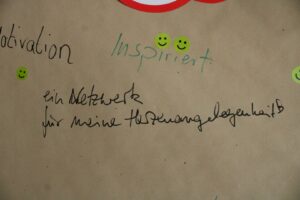 Motivation Inspiriert
ein Netzwerk
für meine Herzensangelegenheit